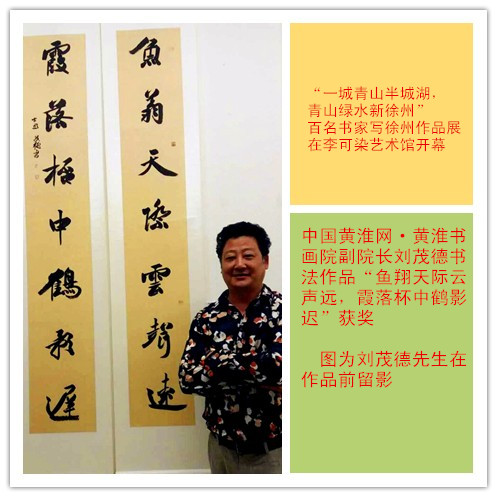 魚翔天際雲聲遠
霞落桮中鶴影遲
“一城青山半城湖，
青山绿水新徐州”
百名书家写徐州作品展
在李可染艺术馆开幕
中国黄淮网·黄淮书
画院副院长刘茂德书
法作品“鱼翔天际云
声远，霞落杯中鹤影
迟”获奖
图为刘茂德先生在
作品前留影